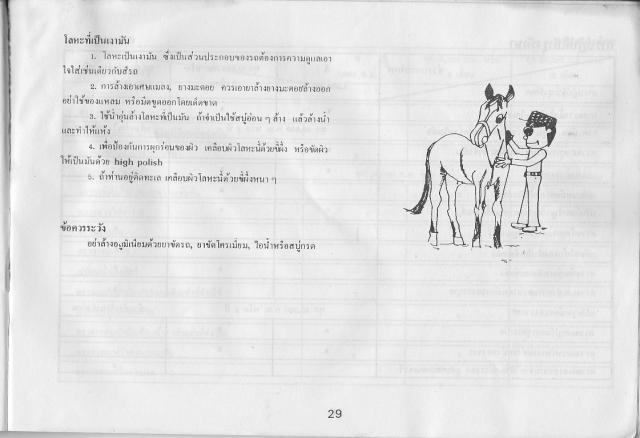 โลหะที่เป็นเงามัน
1. โลหะเป็นเงามัน ซึ่งเป็นส่วนประกอบของรถต้องการความดูแลเอา
ใจใส่เช่นเดียวกับสีรถ
2. การล้างเอาเศษแมลง, ยางมะตอย ควรเอายาล้างยางมะตอยล้างออก
อย่าใช้ของแหลม หรือมีดขูดออกโดยเด็ดขาด
3. ใช้น้ำอุ่นล้างโลหะที่เป็นมัน ถ้าจำเป็นใช้สบู่อ่อน ๆ ล้าง แล้วล้างน้ำ
และทำให้แห้ง
4. เพื่อป้องกันการผุกร่อนของผิว เคลือบผิวโลหะนี้ด้วยขี้ผึ้ง หรือขัดผิว
ให้เป็นมันด้วย high polish
5. ถ้าท่านอยู่ติดทะเล เคลือบผิวโลหะนี้ด้วยขี้ผึ้งหนา ๆ
ข้อควรระวัง
อย่าล้างอลูมิเนียมด้วยยาขัดรถ, ยาขัดโครเมี่ยม, ไอน้ำหรือสบู่กรด
29